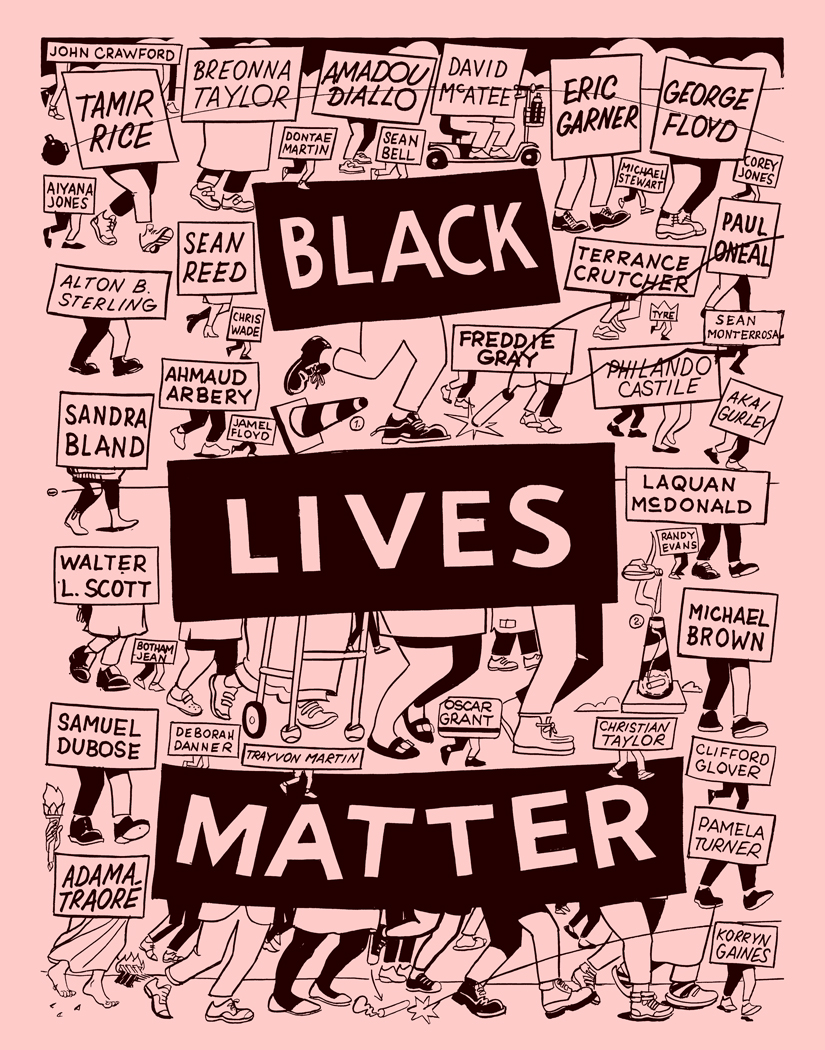 JOHN CRAWFORD
TAMIR
RICE
BREONNA
TAYLOR
AMADOU
DIALLO
DAVID
McATEE
ERIC
GARNER
GEORGE
FLOYD
DONTAE
MARTIN
SEAN
BELL
MICHAEL
STEWART
COREY
JONES
AIYANA
JONES
BLACK
PAUL
ONEAL
SEAN
REED
TERRANCE
CRUTCHER
ALTON B.
STERLING
CHRIS
WADE
TYRE
SEAN
MONTERROSA
FREDDIE
GRAY
PHILANDO
CASTILE
AHMAUD
ARBERY
AKAI
GURLEY
SANDRA
BLAND
JAMEL
FLOYD
1.
LIVES
LAQUAN
McDONALD
RANDY
EVANS
WALTER
L. SCOTT
MICHAEL
BROWN
2.
BOTHAM
JEAN
SAMUEL
DUBOSE
DEBORAH
DANNER
TRAYVON MARTIN
OSCAR
GRANT
CHRISTIAN
TAYLOR
CLIFFORD
GLOVER
MATTER
PAMELA
TURNER
ADAMA
TRAORE
KORRYN
GAINES